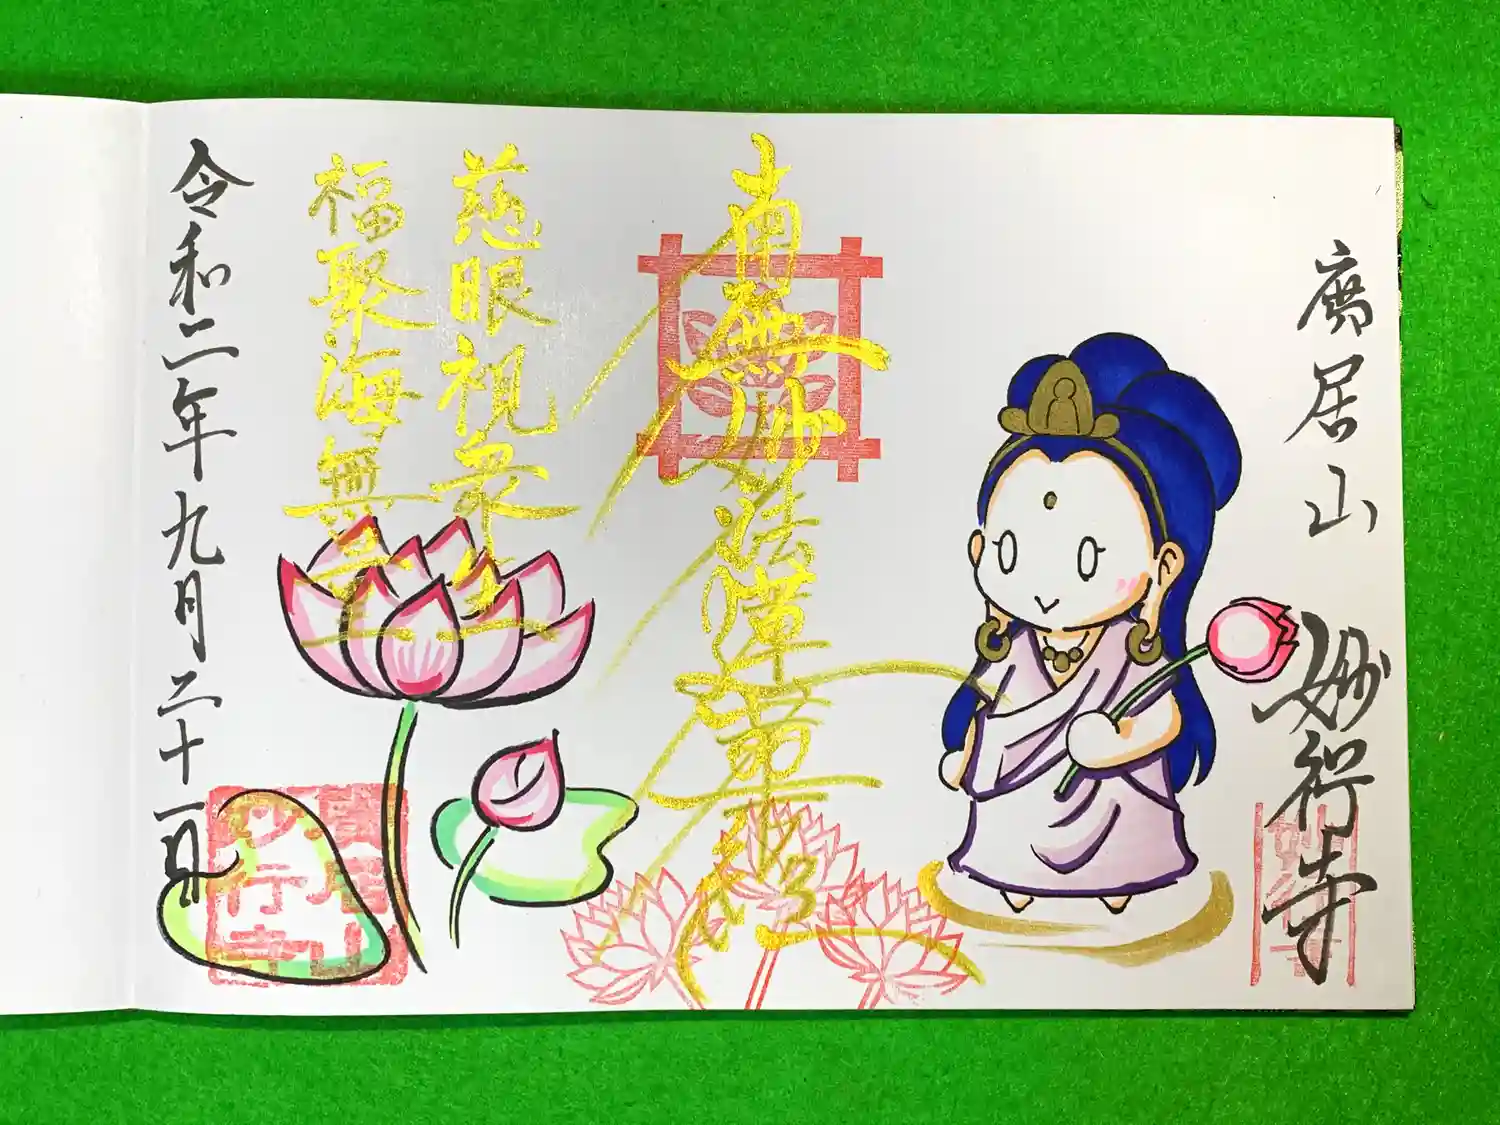 廣居山
妙行寺
南無妙法蓮華経
慈眼視衆生
福聚海無量
令和二年九月二十一日
廣居山
妙行寺